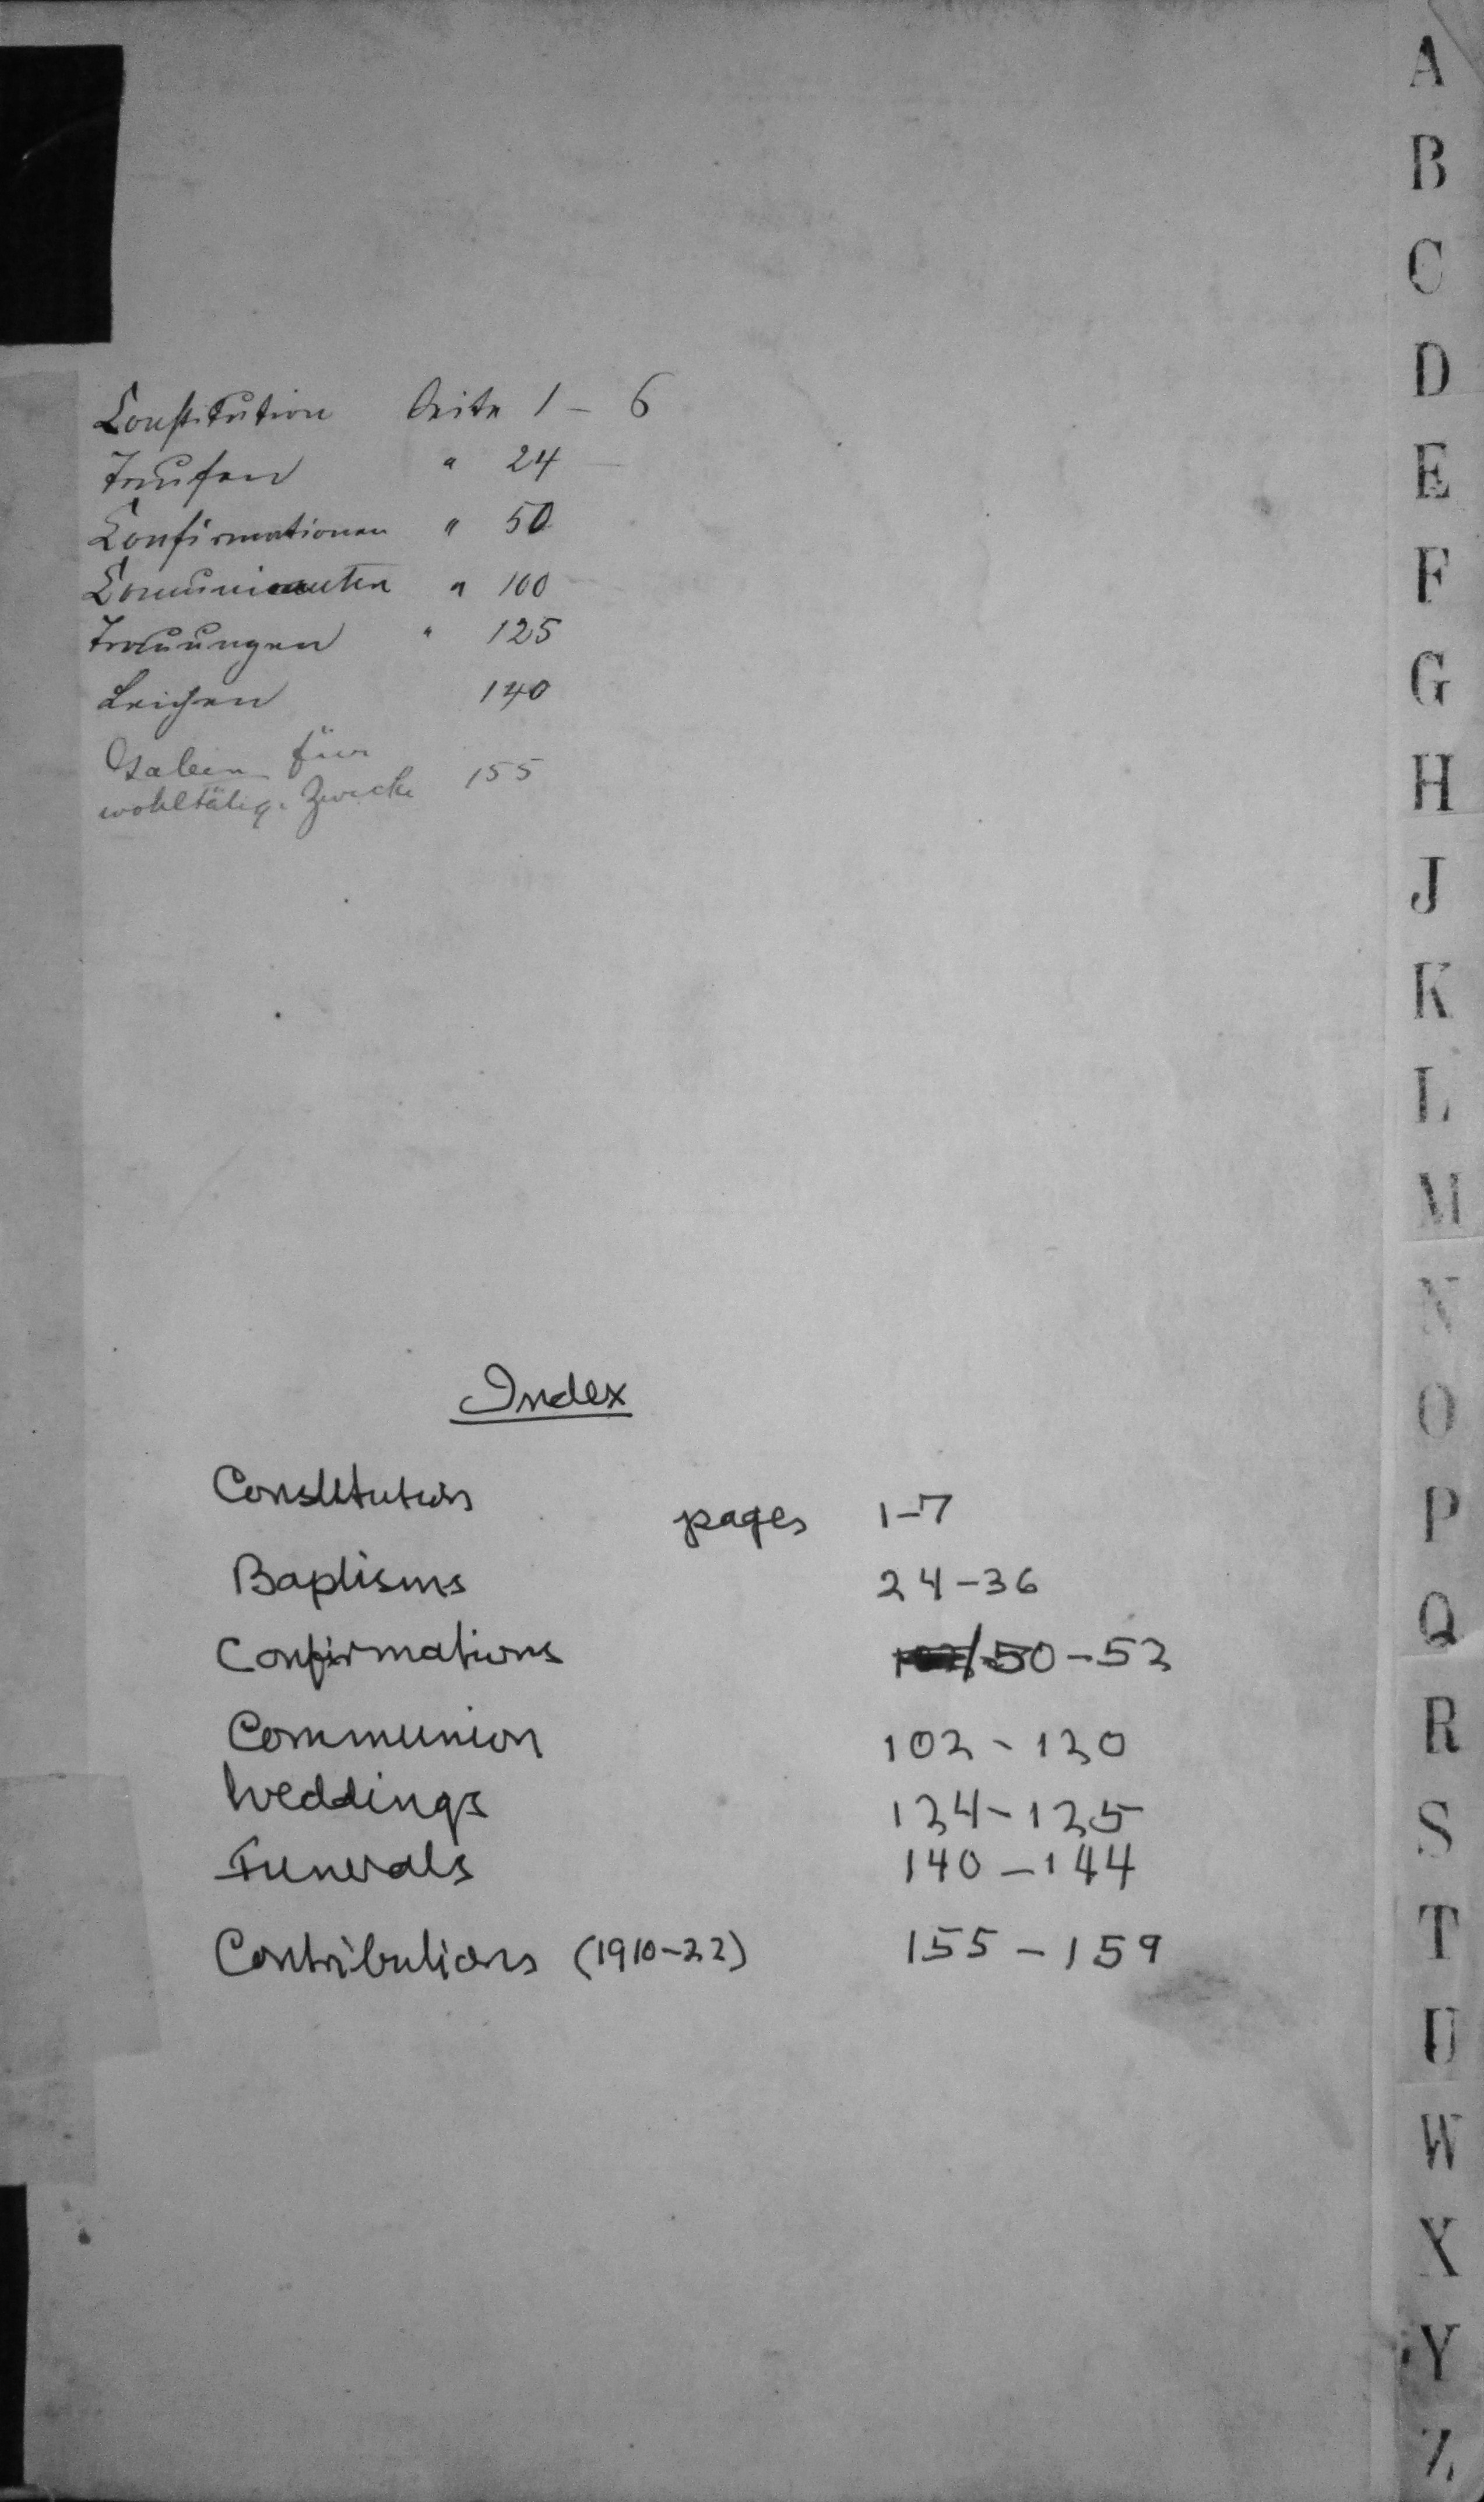 Constitution Seite 1 – 6
Taufen " 24
Confirmationen " 50
Communicanten " 100
Trauungen " 125
Leichen 140
Gaben für
wohltätige Zwecke 155
Index
Constitution pages 1–7
Baptisms 24–36
Confirmations 50–52
Communion 102–120
Weddings 124–125
Funerals 140–144
Contributions (1910–22) 155–159
A
B
C
D
E
F
G
H
J
K
L
M
N
O
P
Q
R
S
T
U
W
X
Y
Z